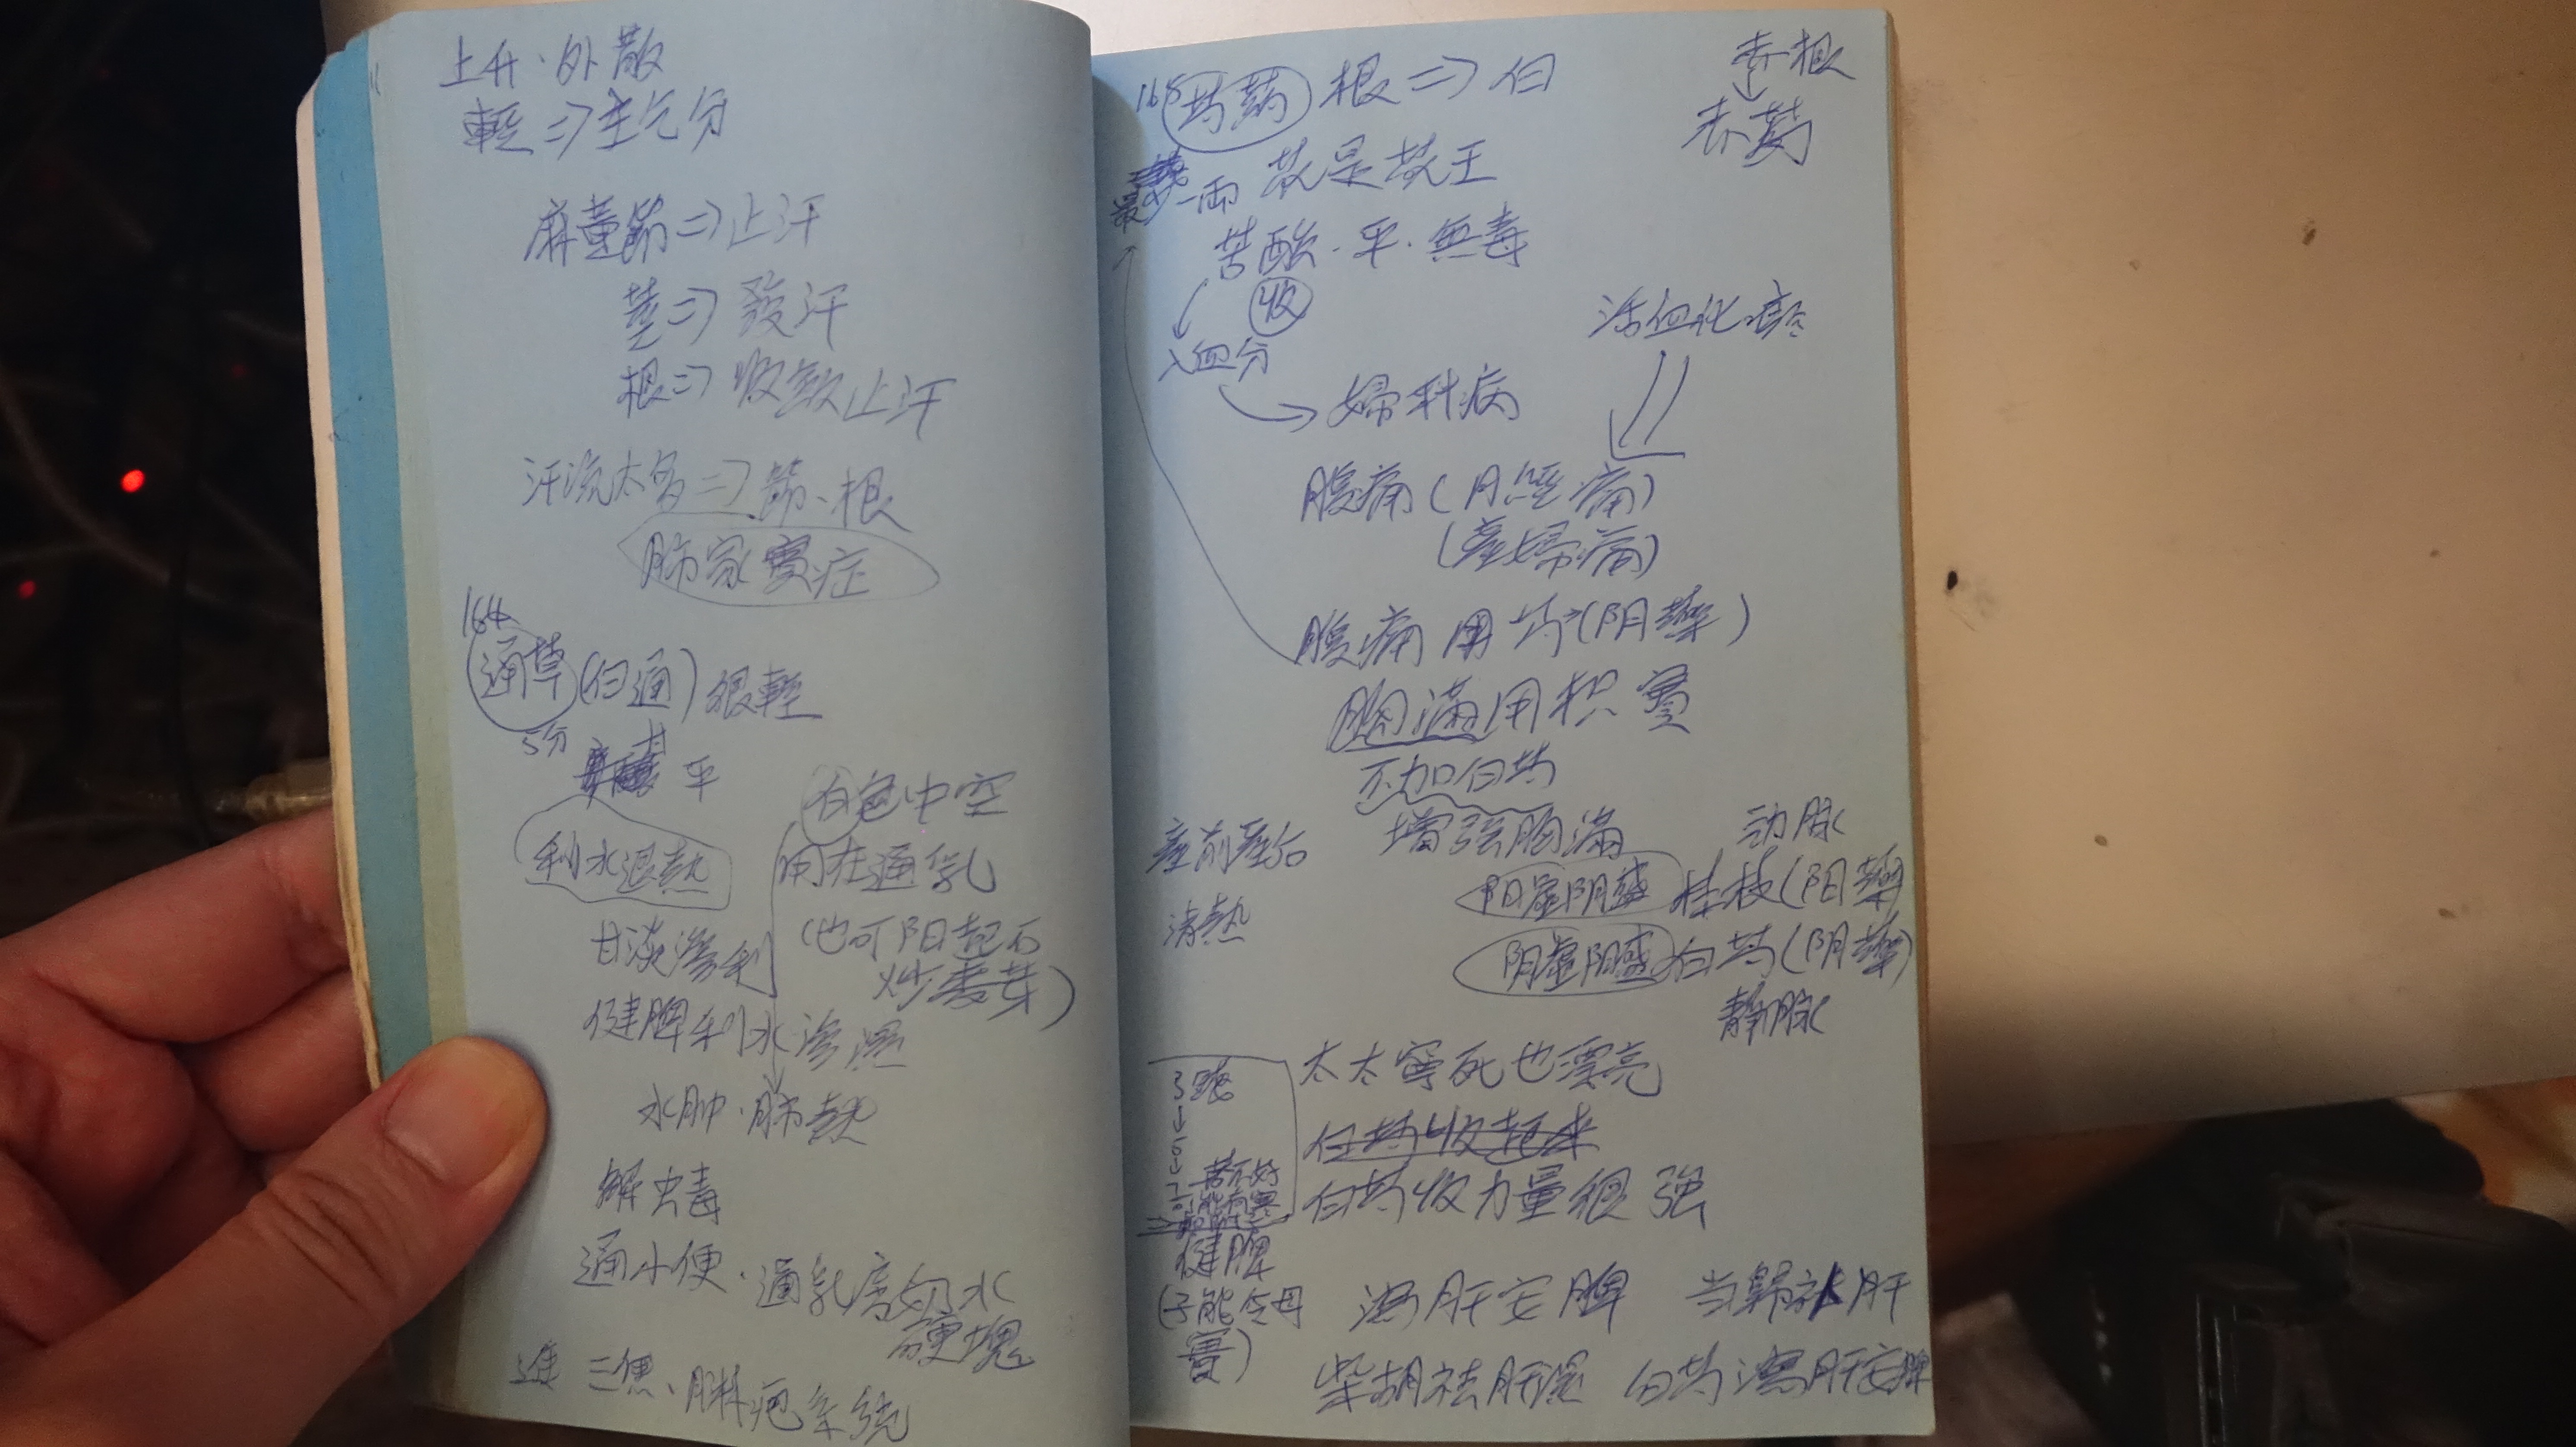 上升．外散
輕⇒主气分
麻黃節⇒止汗
莖⇒發汗
根⇒收斂止汗
汗流太多⇒節、根
肺家實症
164
通草(白通)很輕
5分
甘平
白色中空
利水退熱
用在通乳
甘淡滲利
(也可阳起石
炒麦芽)
健脾利水滲濕
水肿．肺熱
解虫毒
通小便．通乳房奶水
硬塊
進三焦、淋疤系統
165 芍藥 根⇒白
赤根
↓
赤芍
最少一兩 是 王
苦酸．平．無毒
收
入血分
活血化瘀
婦科病
腹痛(月經痛)
(產婦痛)
腹痛用芍(阴藥)
胸滿用枳實
不加白芍
增強胸滿
動脉
產前產后
阳虛阴盛 桂枝(阳藥)
清熱
阴虛阳盛 白芍(阴藥)
靜脉
3號
↓
5
太太寧死也漂亮
白芍收起來
苦不好
能有寒
白芍收力量很強
健脾
(子能令母
實)
瀉肝安脾 当歸补肝
柴胡祛肝濕 白芍瀉肝安脾